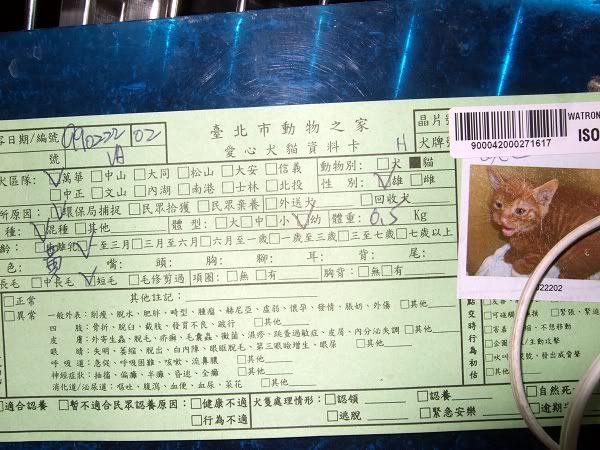 臺北市動物之家
愛心犬貓資料卡
日期/編號 090222 02
號
晶片號
犬牌號
H
WATRON
ISO
900042000271617
犬區隊：☑萬華□中山□大同□松山□大安□信義
□中正□文山□內湖□南港□士林□北投
動物別：□犬■貓
性別：☑雄□雌
所原因：☑環保局捕捉□民眾拾獲□民眾棄養□外送犬□回收犬
種：☑混種□其他
體型：□大□中□小☑幼 體重：0.3 Kg
齡：□離乳☑至三月□三月至六月□六月至一歲□一歲至三歲□三至七歲□七歲以上
色：黃 嘴： 頭： 腳： 耳： 背： 尾：
長毛□中長毛☑短毛□毛修剪過 項圈：□無□有 胸背：□無□有
22202
□正常 其他註記：
□異常 一般外表：削瘦、脫水、肥胖、畸型、腫瘤、赫尼亞、虛弱、懷孕、發情、脹奶、外傷 □其他
四肢：骨折、脫臼、截肢、發育不良、跛行 □其他
皮膚：外寄生蟲、脫毛、疥癬、毛囊蟲、黴菌、濕疹、跳蚤過敏症、皮屑、內分泌失調 □其他
眼睛：失明、萎縮、脫出、白內障、眼瞼脫毛、第三眼瞼增生、眼屎 □其他
呼吸道：急促、呼吸困難、咳嗽、流鼻膿 □其他
神經症狀：抽搐、偏癱、半癱、昏迷、全癱 □其他
消化道/泌尿道：嘔吐、腹瀉、血便、血尿、菜花 □其他
點交時行為初估
□友善
□可碰觸
□緊張
□害羞 不想移動
□企 生動攻擊
□吠叫 發出威聲
□其他
適合認養 □暫不適合民眾認養原因：□健康不適
□行為不適
犬隻處理情形：□認領 □認養 □自然死
□逃脫 □緊急安樂 □逾期